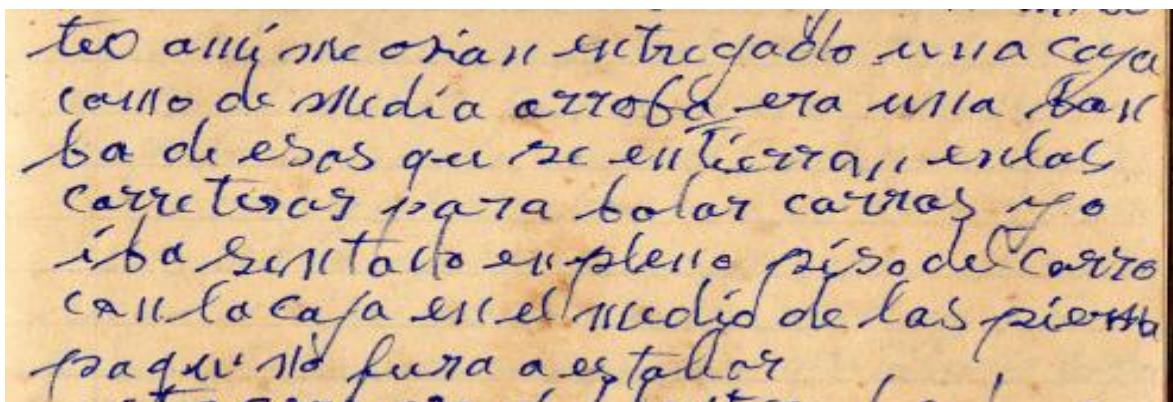 teo a mi me orian entregado una caja
como de media arroba era una bon
ba de esas que se entierran enlas
carreteras para bolar carros yo
iba sentado en pleno piso del carro
con la caja en el medio de las pierna
pa que no fura a estallar